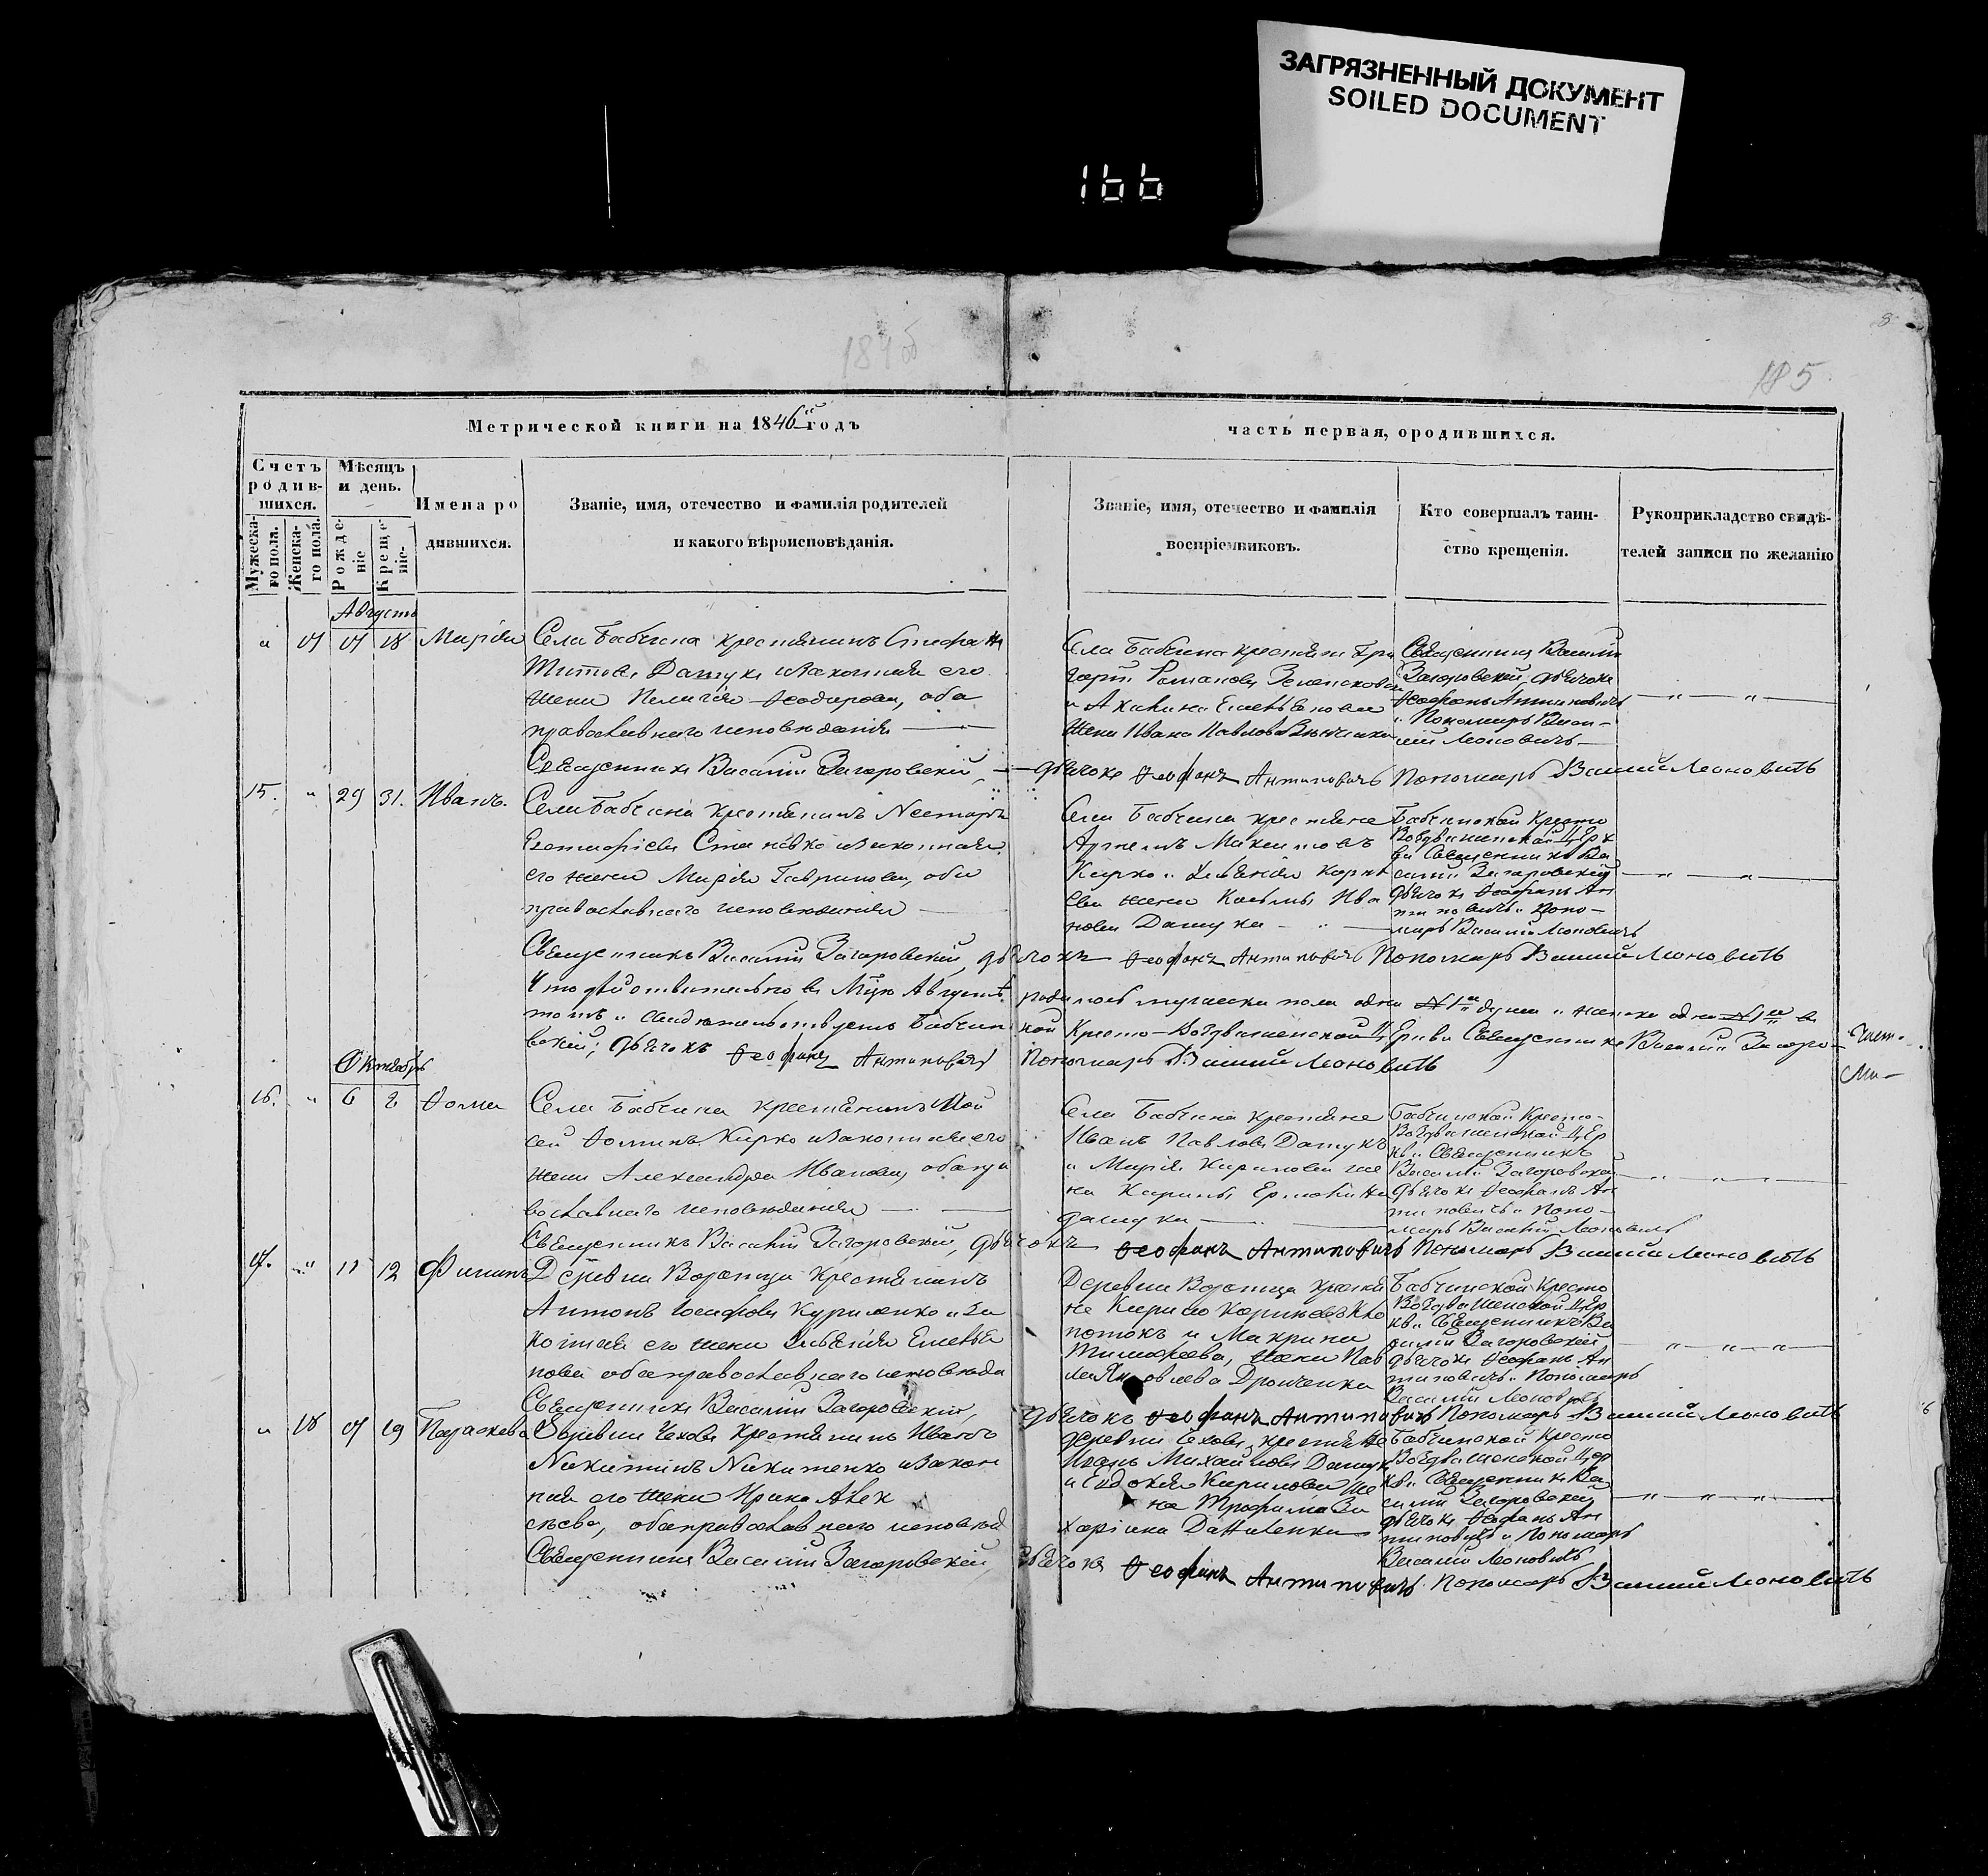 ЗАГРЯЗНЕННЫЙ ДОКУМЕНТ
SOILED DOCUMENT
166
8
184 об
185
Метрической книги на 1846й годъ
часть первая, ородившихся.
Счетъ родив-шихся.
Мѣсяцъ и день.
Мужеска-го пола.
Женска-го пола.
Рожде-ніе
Креще-ніе.
Имена ро дившихся.
Званіе, имя, отечество и фамилія родителей
и какого вѣроисповѣданія.
Званіе, имя, отечество и фамилія
воспріемниковъ.
Кто совершалъ таин-
ство крещенія.
Рукоприкладство свидѣ-
телей записи по желанію
Августъ
18 Марія
Села Бабчина крестьянинъ Стефанъ
Титовъ Дашукъ изаконная его
жена Пелагія Ѳеодорова, оба
православнаго исповѣданія
Села Бабчина крестьяне Гри
горій Романовъ
и Акилина
жена Ивана Павлова
Священникъ Василій
Загоровскій, дьячокъ
Ѳеофанъ Антиповичъ
и Пономарь Васи-
лій Моновичъ
Священникъ Василій Загоровскій, дьячокъ Ѳеофанъ Антиповичъ Пономарь Василій Моновичъ
15. " 29 31. Иванъ.
Села Бабчина крестьянинъ Несторъ
его жена Марія Гаврилова, оба
православнаго исповѣданія
Села Бабчина крестьяне
Максимовъ
Кирко и Ксенія Корнѣ
ева жена Косьмы Ива
нова Дашука
Бабчинской Кресто
Воздвиженской Церк
ви Священникъ Ва
силій Загоровскій
дьячокъ Ѳеофанъ Ан
типовичъ и Поно-
марь Василій Моновичъ
Священникъ Василій Загоровскій, дьячокъ Ѳеофанъ Антиповичъ Пономарь Василій Моновичъ
Что дѣйствительно въ Мцѣ Августѣ родилось мужеска пола одна душа и женска одна въ
томъ и свидѣтельствуемъ Бабчинской Кресто-Воздвиженской Церкви Священникъ Василій Загоро-
вскій; дьячокъ Ѳеофанъ Антиповичъ Пономарь Василій Моновичъ
Октябрь
16. " 6 Ѳома
Села Бабчина крестьянинъ Мои
сей Ѳоминъ Кирко изаконная его
жена Александра Иванова, оба пра
вославнаго исповѣданія
Села Бабчина крестьяне
Иванъ Павловъ Дашукъ
и Марія Кирилова же
на Кирилы Ермолина
Дашука
Бабчинской Кресто-
Воздвиженской Цер
кви Священникъ
Василій Загоровскій
дьячокъ Ѳеофанъ Ан
типовичъ и Поно-
марь Василій Моновичъ
Священникъ Василій Загоровскій, дьячокъ Ѳеофанъ Антиповичъ Пономарь Василій Моновичъ
" 11 12 Филипъ
Деревни Воротца Крестьянинъ
Антонъ Іосифовъ Куриленко и за
конная его жена Ксенія Емелья
нова оба православнаго исповѣда
Деревни Воротца крестья
не Кирило Корнѣевъ Кло
потокъ и Макрина
Тимофеева, жена Пав
ла Яковлева Дромченка
Бабчинской Кресто
Воздвиженской Цер
кви Священникъ Ва
силій Загоровскій
дьячокъ Ѳеофанъ Ан
типовичъ и Пономарь
Василій Моновичъ
Священникъ Василій Загоровскій, дьячокъ Ѳеофанъ Антиповичъ Пономарь Василій Моновичъ
" 18 19 Параскева
Деревни Чехова крестьянинъ Иванъ
Никитинъ Никитенко изакон
ная его жена Ирина Алек
сѣева, оба православнаго исповѣд
Деревни Чехова крестьяне
Иванъ Михайловъ Дашукъ
и Евдокія Кирилова же
на Трофима За
харіина Даниленка
Бабчинской Кресто
Воздвиженской Цер
кви Священникъ Ва
силій Загоровскій
дьячокъ Ѳеофанъ Ан
типовичъ и Пономарь
Василій Моновичъ
Священникъ Василій Загоровскій, дьячокъ Ѳеофанъ Антиповичъ Пономарь Василій Моновичъ